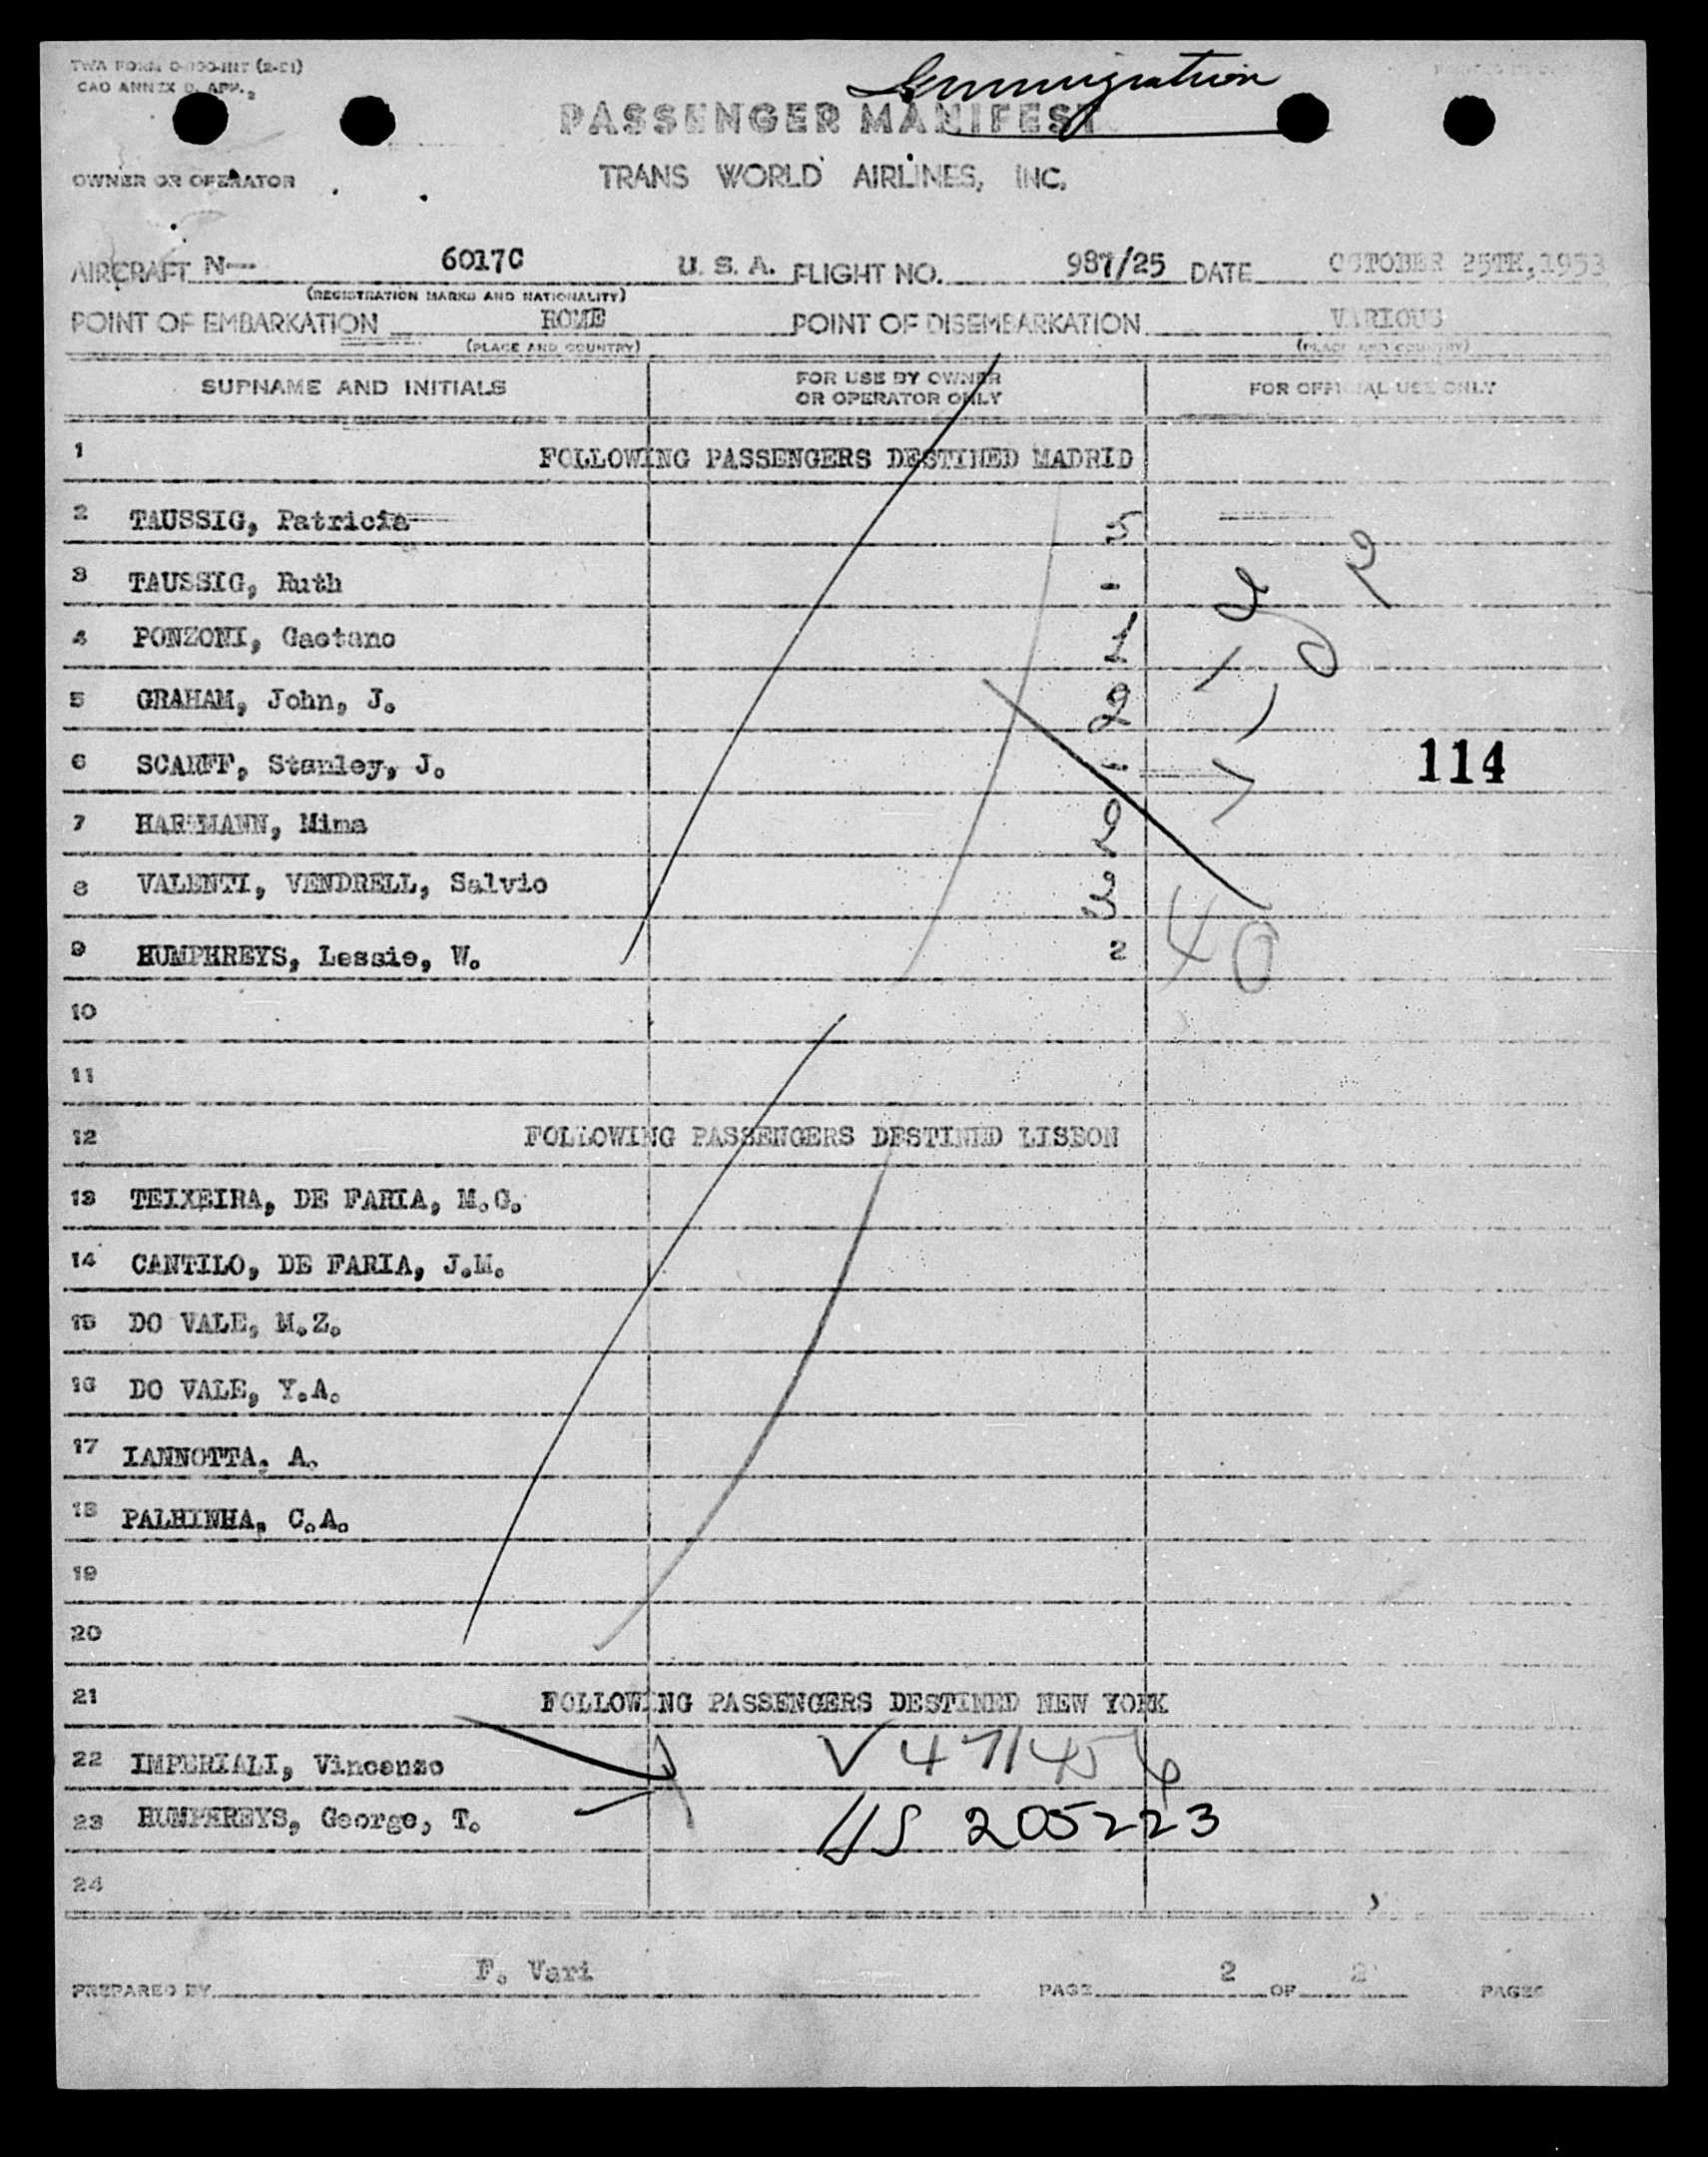 TWA FORM
CAO ANNEX D. APP. 2
Immigration
PASSENGER MANIFEST
OWNER OR OPERATOR TRANS WORLD AIRLINES, INC.
AIRCRAFT N— 6017C U. S. A. FLIGHT NO. 987/25 DATE OCTOBER 25TH, 1953
(REGISTRATION MARKS AND NATIONALITY)
POINT OF EMBARKATION ROME POINT OF DISEMBARKATION VARIOUS
(PLACE AND COUNTRY) (PLACE AND COUNTRY)
SURNAME AND INITIALS FOR USE BY OWNER OR OPERATOR ONLY FOR OFFICIAL USE ONLY
1 FOLLOWING PASSENGERS DESTINED MADRID
2 TAUSSIG, Patricia
3 TAUSSIG, Ruth -
4 PONZONI, Gaetano 1
5 GRAHAM, John, J. 2
6 SCARFF, Stanley, J. 114
7 HARTMANN, Mima 2
8 VALENTI, VENDRELL, Salvio
9 HUMPHREYS, Lessie, W. 2 40
10
11
12 FOLLOWING PASSENGERS DESTINED LISBON
13 TEIXEIRA, DE FARIA, M.G.
14 CANTILO, DE FARIA, J.M.
15 DO VALE, M.Z.
16 DO VALE, Y.A.
17 IANNOTTA, A.
18 PALHINHA, C.A.
19
20
21 FOLLOWING PASSENGERS DESTINED NEW YORK
22 IMPERIALI, Vincenzo V 471456
23 HUMPHREYS, George, T. US 205223
24
PREPARED BY F. Vari PAGE 2 OF 2 PAGES